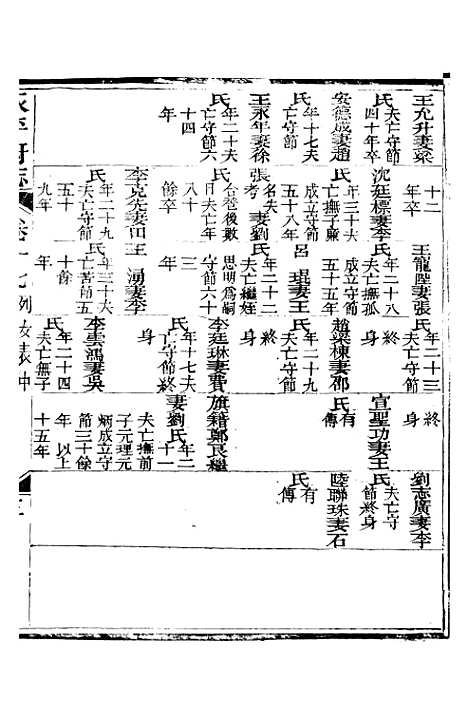 王允升妻梁
氏 夫亡守節
四十年卒
安德成妻趙
氏 年十七夫
亡守節
王永年妻徐
氏 年二十夫
亡守節六
十四
年
十二
年卒
沈廷標妻李
氏 年三十夫
亡撫子廉
成立守節
五十八年
張考 名失 妻劉
氏 台登後數
日夫亡年
八十
餘卒
李克先妻田
氏 年二十九
夫亡守節
五十
九年
王龍陞妻張
氏 年二十八
夫亡撫孤
成立守節
五十五年
呂琨妻王
氏 年二十二
夫亡繼姪
思明為嗣
守節六十
三
年
王湧妻李
氏 年三十夫
亡苦節五
十餘
年
氏 年二十三
夫亡無子
趙樂棟妻邵
氏 年二十九
夫亡守節
終
身
李廷琳妻費
氏 年十七夫
亡守節終
身
李雲鴻妻吳
氏 年二十四
夫亡無子
終
身
宣聖功妻王
氏 有
傳
旗籍鄭良繼
妻劉氏 年二
十一
夫亡撫前
子元理元
炳成立守
節三十餘
年 以上
十五年
劉志廣妻李
氏 夫亡守
節終身
陸聯珠妻石
氏 有
傳
永平府志 卷十七 列女表中